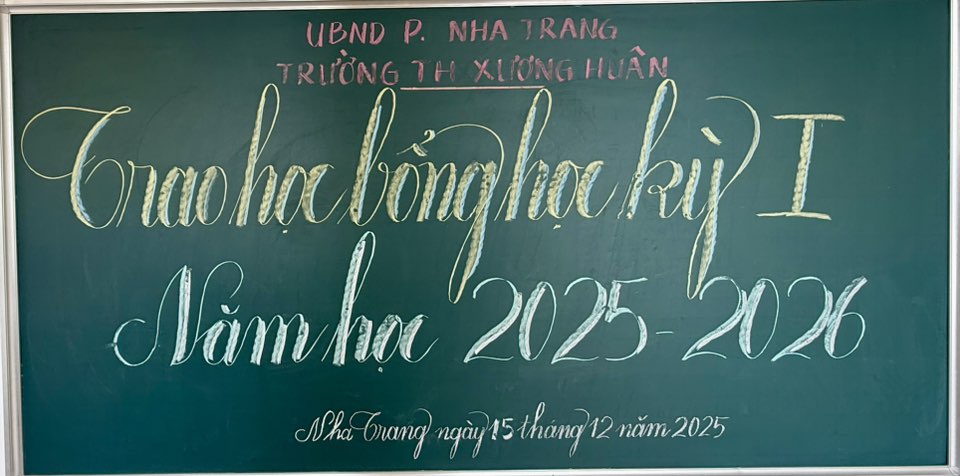 UBND P. NHA TRANG
TRƯỜNG TH XƯƠNG HUÂN
Trao học bổng học kỳ I
Năm học 2025-2026
Nha Trang ngày 15 tháng 12 năm 2025